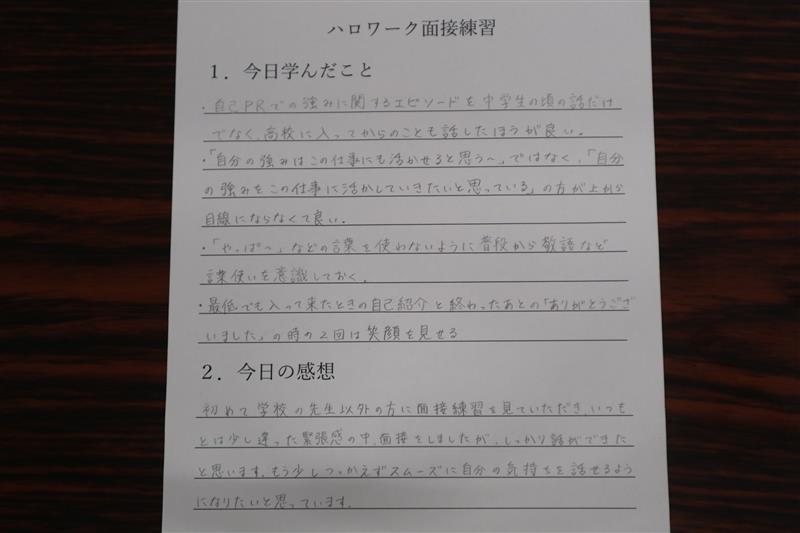 ハロワーク面接練習
１．今日学んだこと
・自己PRでの強みに関するエピソードを中学生の頃の話だけ
でなく、高校に入ってからのことも話したほうが良い。
・「自分の強みはこの仕事にも活かせると思う〜」ではなく、「自分
の強みをこの仕事に活かしていきたいと思っている」の方が上から
目線にならなくて良い。
・「やっぱ〜」などの言葉を使わないように普段から敬語など
言葉使いを意識しておく。
・最低でも入って来たときの自己紹介と終わったあとの「ありがとうござ
いました」の時の2回は笑顔を見せる
２．今日の感想
初めて学校の先生以外の方に面接練習を見ていただき、いつも
とは少し違った緊張感の中、面接をしましたが、しっかり話ができた
と思います。もう少しつっかえずスムーズに自分の気持ちを話せるよう
になりたいと思っています。